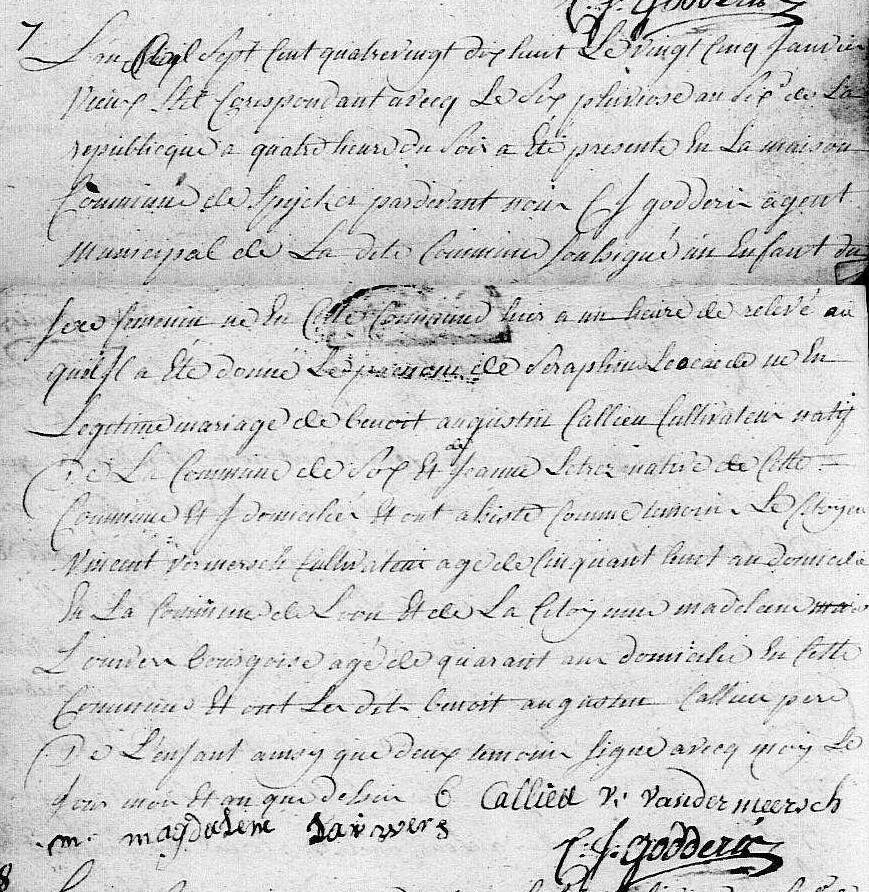 C. J. Godderis
7 L'an Mil Sept Cent quatrevingt dix huit Le vingt Cinq Janvier
vieux Stil Corespondant avecq Le Six pluviose an Six de La
republicque a quatre heure du Soir a Eté presente En La maison
Commune de Spycker pardevant nous C J godderis agent
Municipal de La dite Commune Soussigné un Enfant du
Sexe feminin né En Cette Commune hier a un heure de relevé au
quel Il a Eté donné Le prenom de Seraphine Leocade né En
Legitime mariage de benoit augustin Callieu Cultivateur natif
De La Commune de Sox Et de Jeanne native de Cette
Commune Et y domicilié Et ont assisté Comme temoin Le Citoyen
Vincent Vermersch Cultivateur agé de Cinquant huit an domicilié
En La Commune de Loon Et de La Citoyenne madeleine
bourgoise agé de quarant an domicilié En Cette
Commune Et ont Les dits benoit augustin Callieu pere
De L'enfant ainsy que deux temoin Signé avecq moy Le
Jour mois Et an que dessus B Callieu v: vandermeersch
m. magdalene Lauwers
C. J. Godderis
8